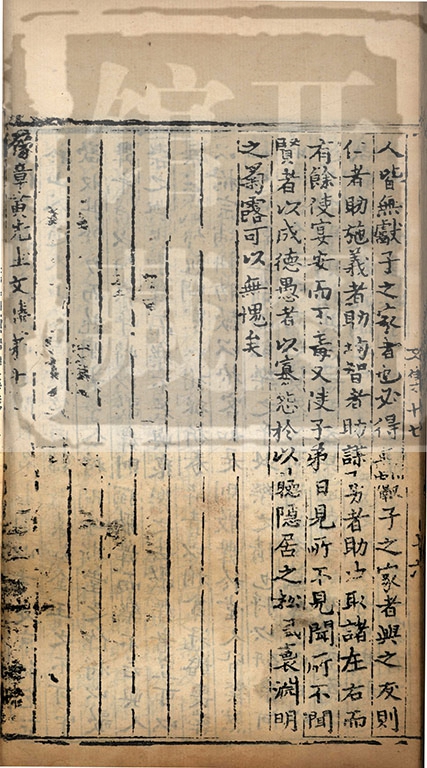 文集十七
十六
人皆無獻子之家者也必得無獻子之家者與之友則
仁者助施義者助均智者助謀勇者助取諸左右而
有餘使宴安而不毒又使子弟日見所不見聞所不聞
賢者以成德愚者以寡怨於以聽隱居之松風裛淵明
之菊露可以無愧矣
豫章黃先生文集第十